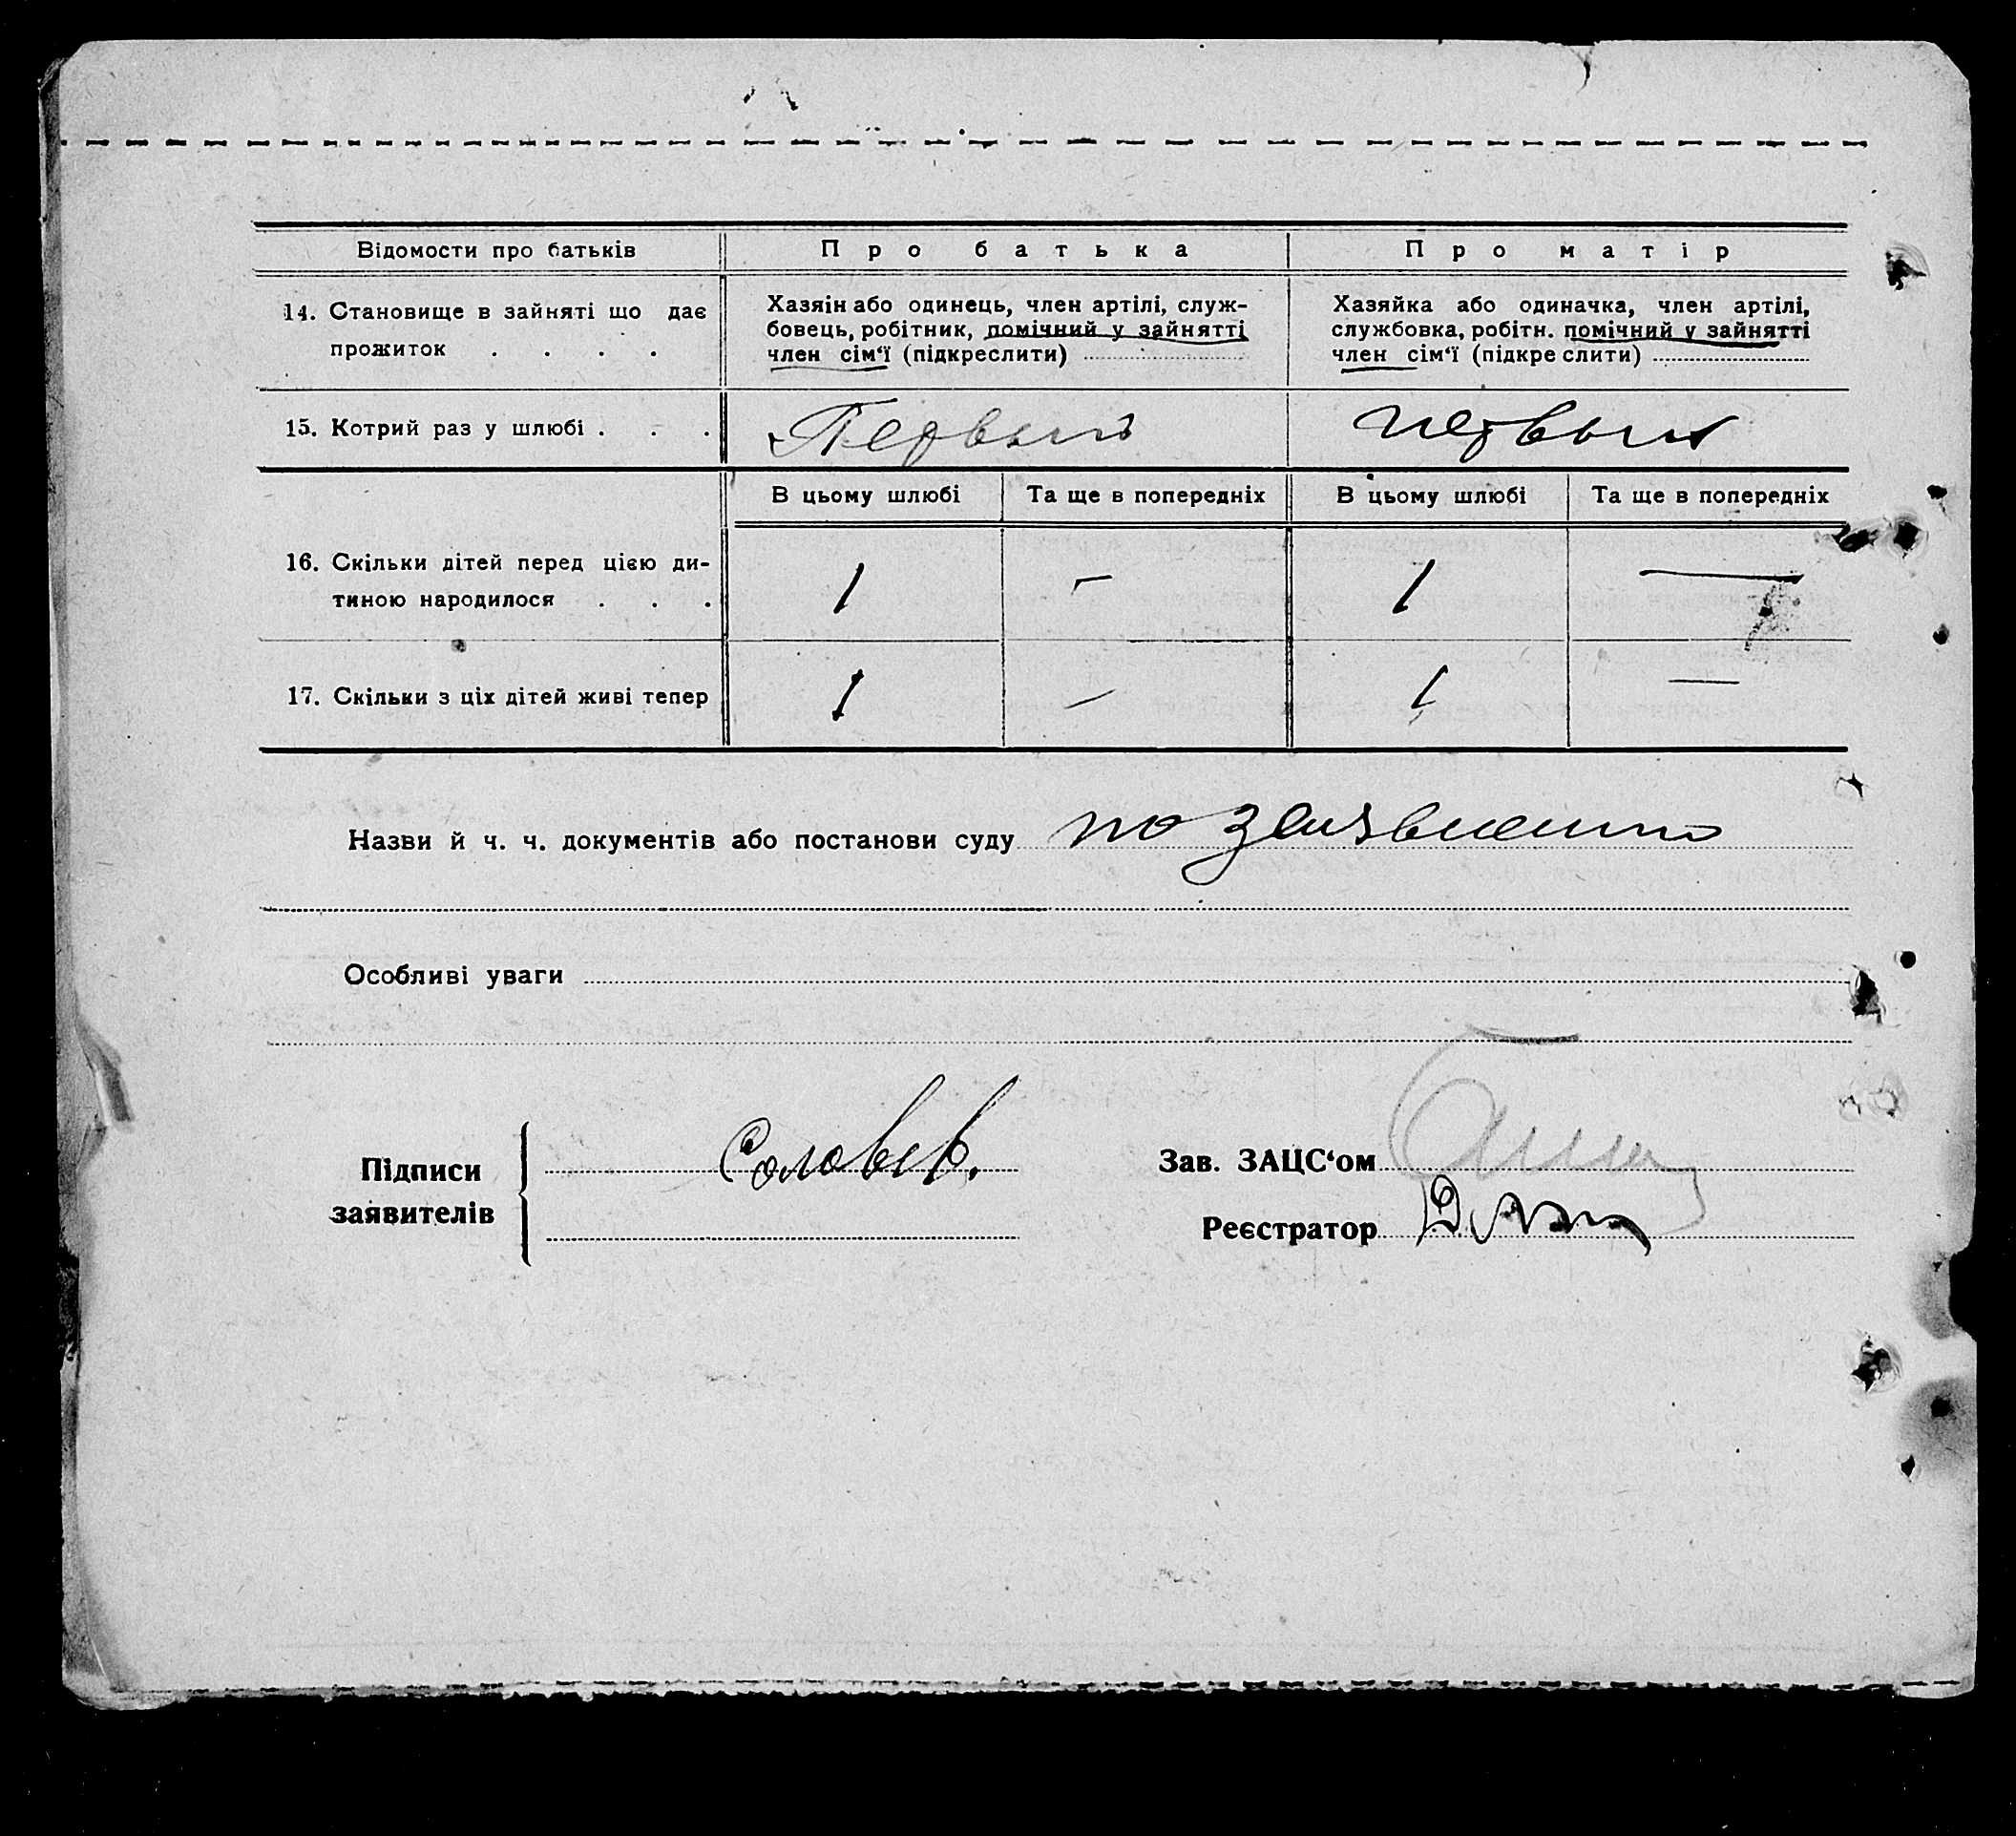 Відомости про батьків
Про батька
Про матір
14. Становище в зайняті що дає
прожиток . . . .
Хазяін або одинець, член артілі, служ-
бовець, робітник, помічний у зайнятті
член сім‘ї (підкреслити)
Хазяйка або одиначка, член артілі,
службовка, робітн. помічний у зайнятті
член сім‘ї (підкреслити)
15. Котрий раз у шлюбі . . .
Первый
первый
В цьому шлюбі
Та ще в попередніх
В цьому шлюбі
Та ще в попередніх
16. Скільки дітей перед цією ди-
тиною народилося . . .
1 — 1 —
17. Скільки з ціх дітей живі тепер
1 — 1 —
Назви й ч. ч. документів або постанови суду по заявлению
Особливі уваги
Підписи
заявителів
Соловьев.
Зав. ЗАЦС‘ом
Реєстратор